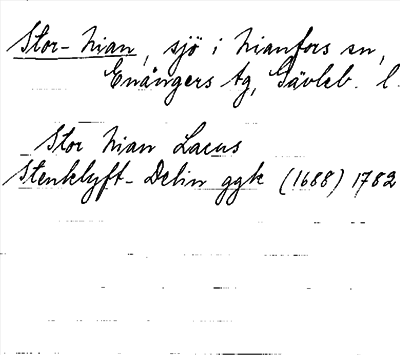 Stor-Nian, sjö i Nianfors sn,
Enångers tg, Gävleb. l.
Stor Nian Lacus
Stenklyft-Delin ggk (1688) 1782